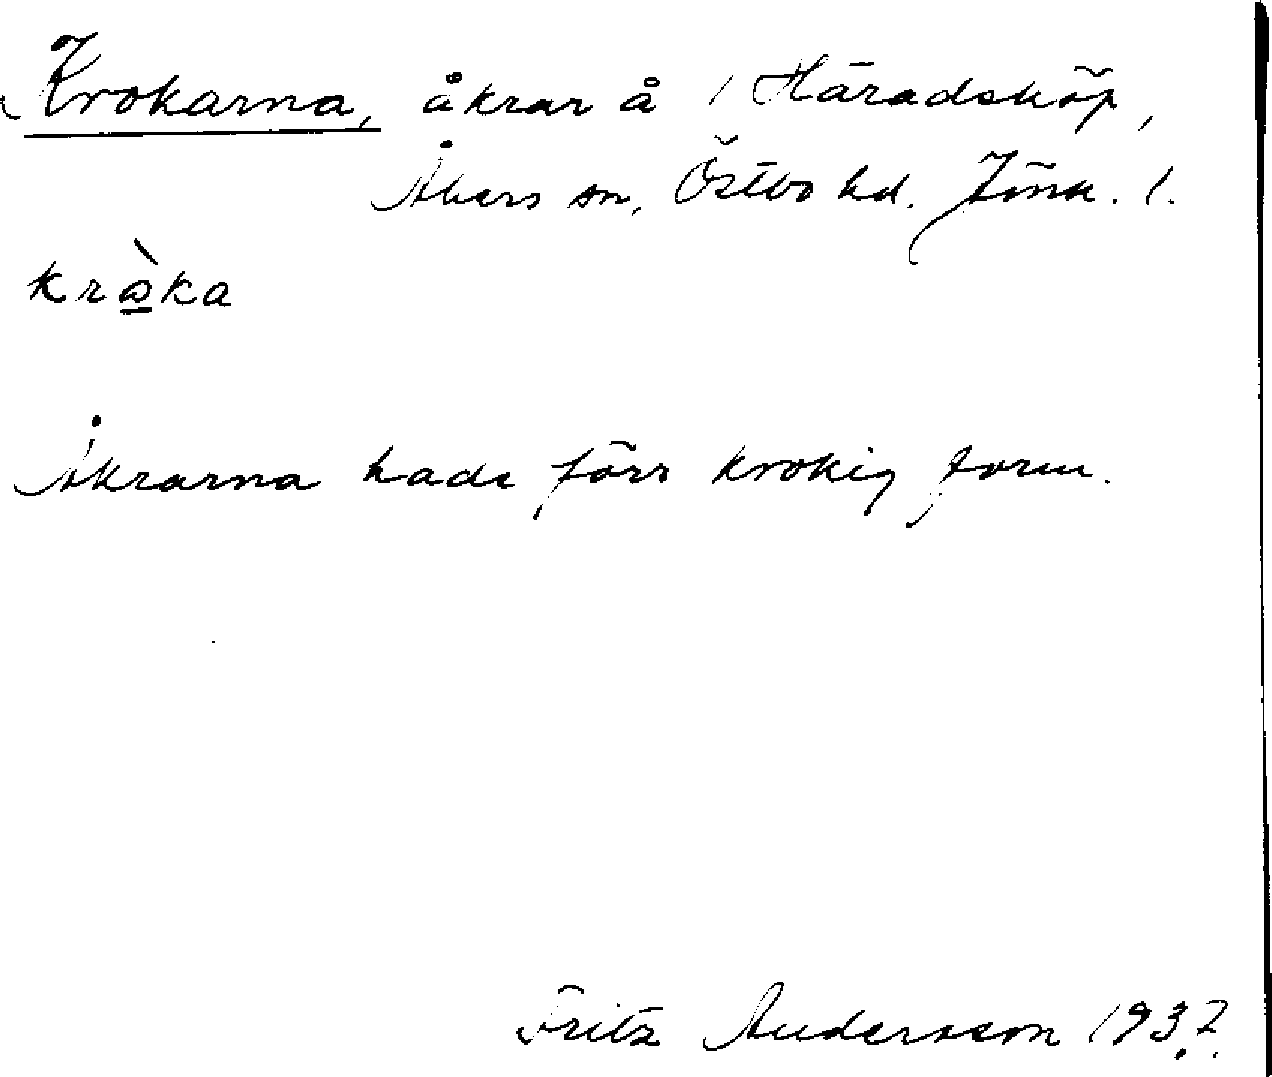 Krokarna, åkrar å 1 Häradsköp,
Åkers sn, Östbo hd. Jönk. l.
kròka
Åkrarna hade förr krokig form.
Fritz Andersson 1932.